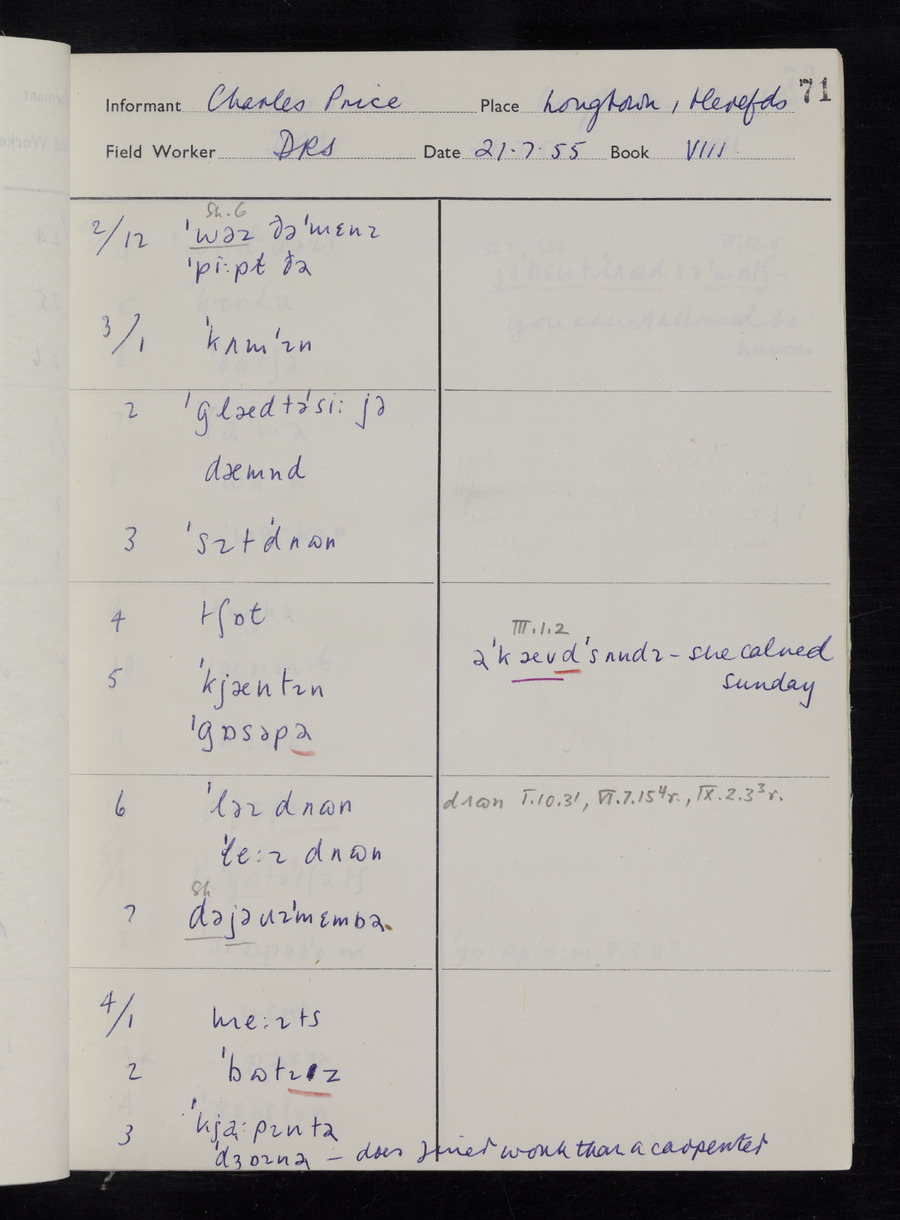 71
Informant Charles Price Place Longtown, Herefds
Field Worker DRS Date 21.7.55 Book VIII
Sh. 6
2/12 ˈwəɪ ðəˈmɛnɪ
ˈpiːpɫ ðə
3/1 ˈkʌmˈɪn
2 ˈɡlædtəˈsiː jə
dæmnd
3 ˈsɪtˈdʌʊn
4 tʃɒt
III.1.2
əˈkævdˈsʌndɪ – she calved
Sunday
5 ˈkjæntɪn
ˈɡɒsəpə
6 ˈləɪ dʌʊn
dʌʊn I.10.3¹, VI.7.15⁴r., IX.2.3³r.
ˈɫeːɪ dʌʊn
Sh
7 dəjəɹɪˈmɛmbə
4/1 meːɪts
2 ˈbʊtɪz
3 ˈkjaːpɪntə
dʒɒɪnə – does finer work than a carpenter